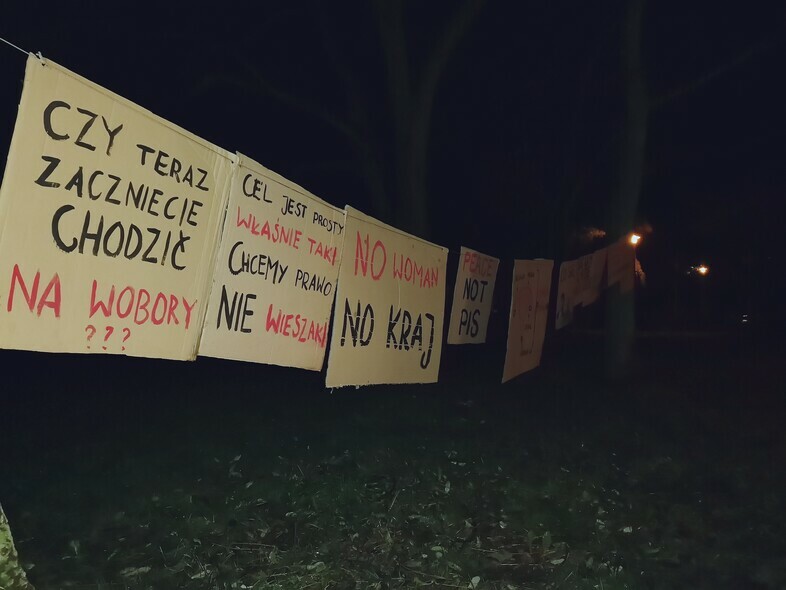 CZY TERAZ
ZACZNIECIE
CHODZIĆ
NA WOBORY
???
CEL JEST PROSTY
WŁAŚNIE TAKI
CHCEMY PRAWO
NIE WIESZAKI
NO WOMAN
NO KRAJ
PEACE
NOT
PIS